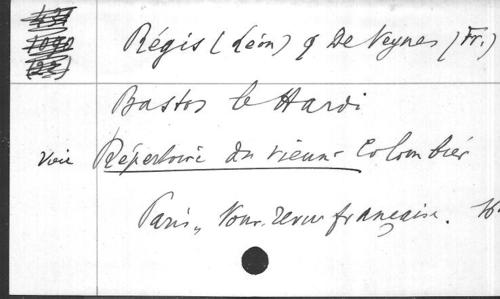 Régis (Léon) & De Veynes (Fr.)
Bastos le Hardi
Voir Répertoire du vieux-Colombier
Paris, Nouv. revue française.